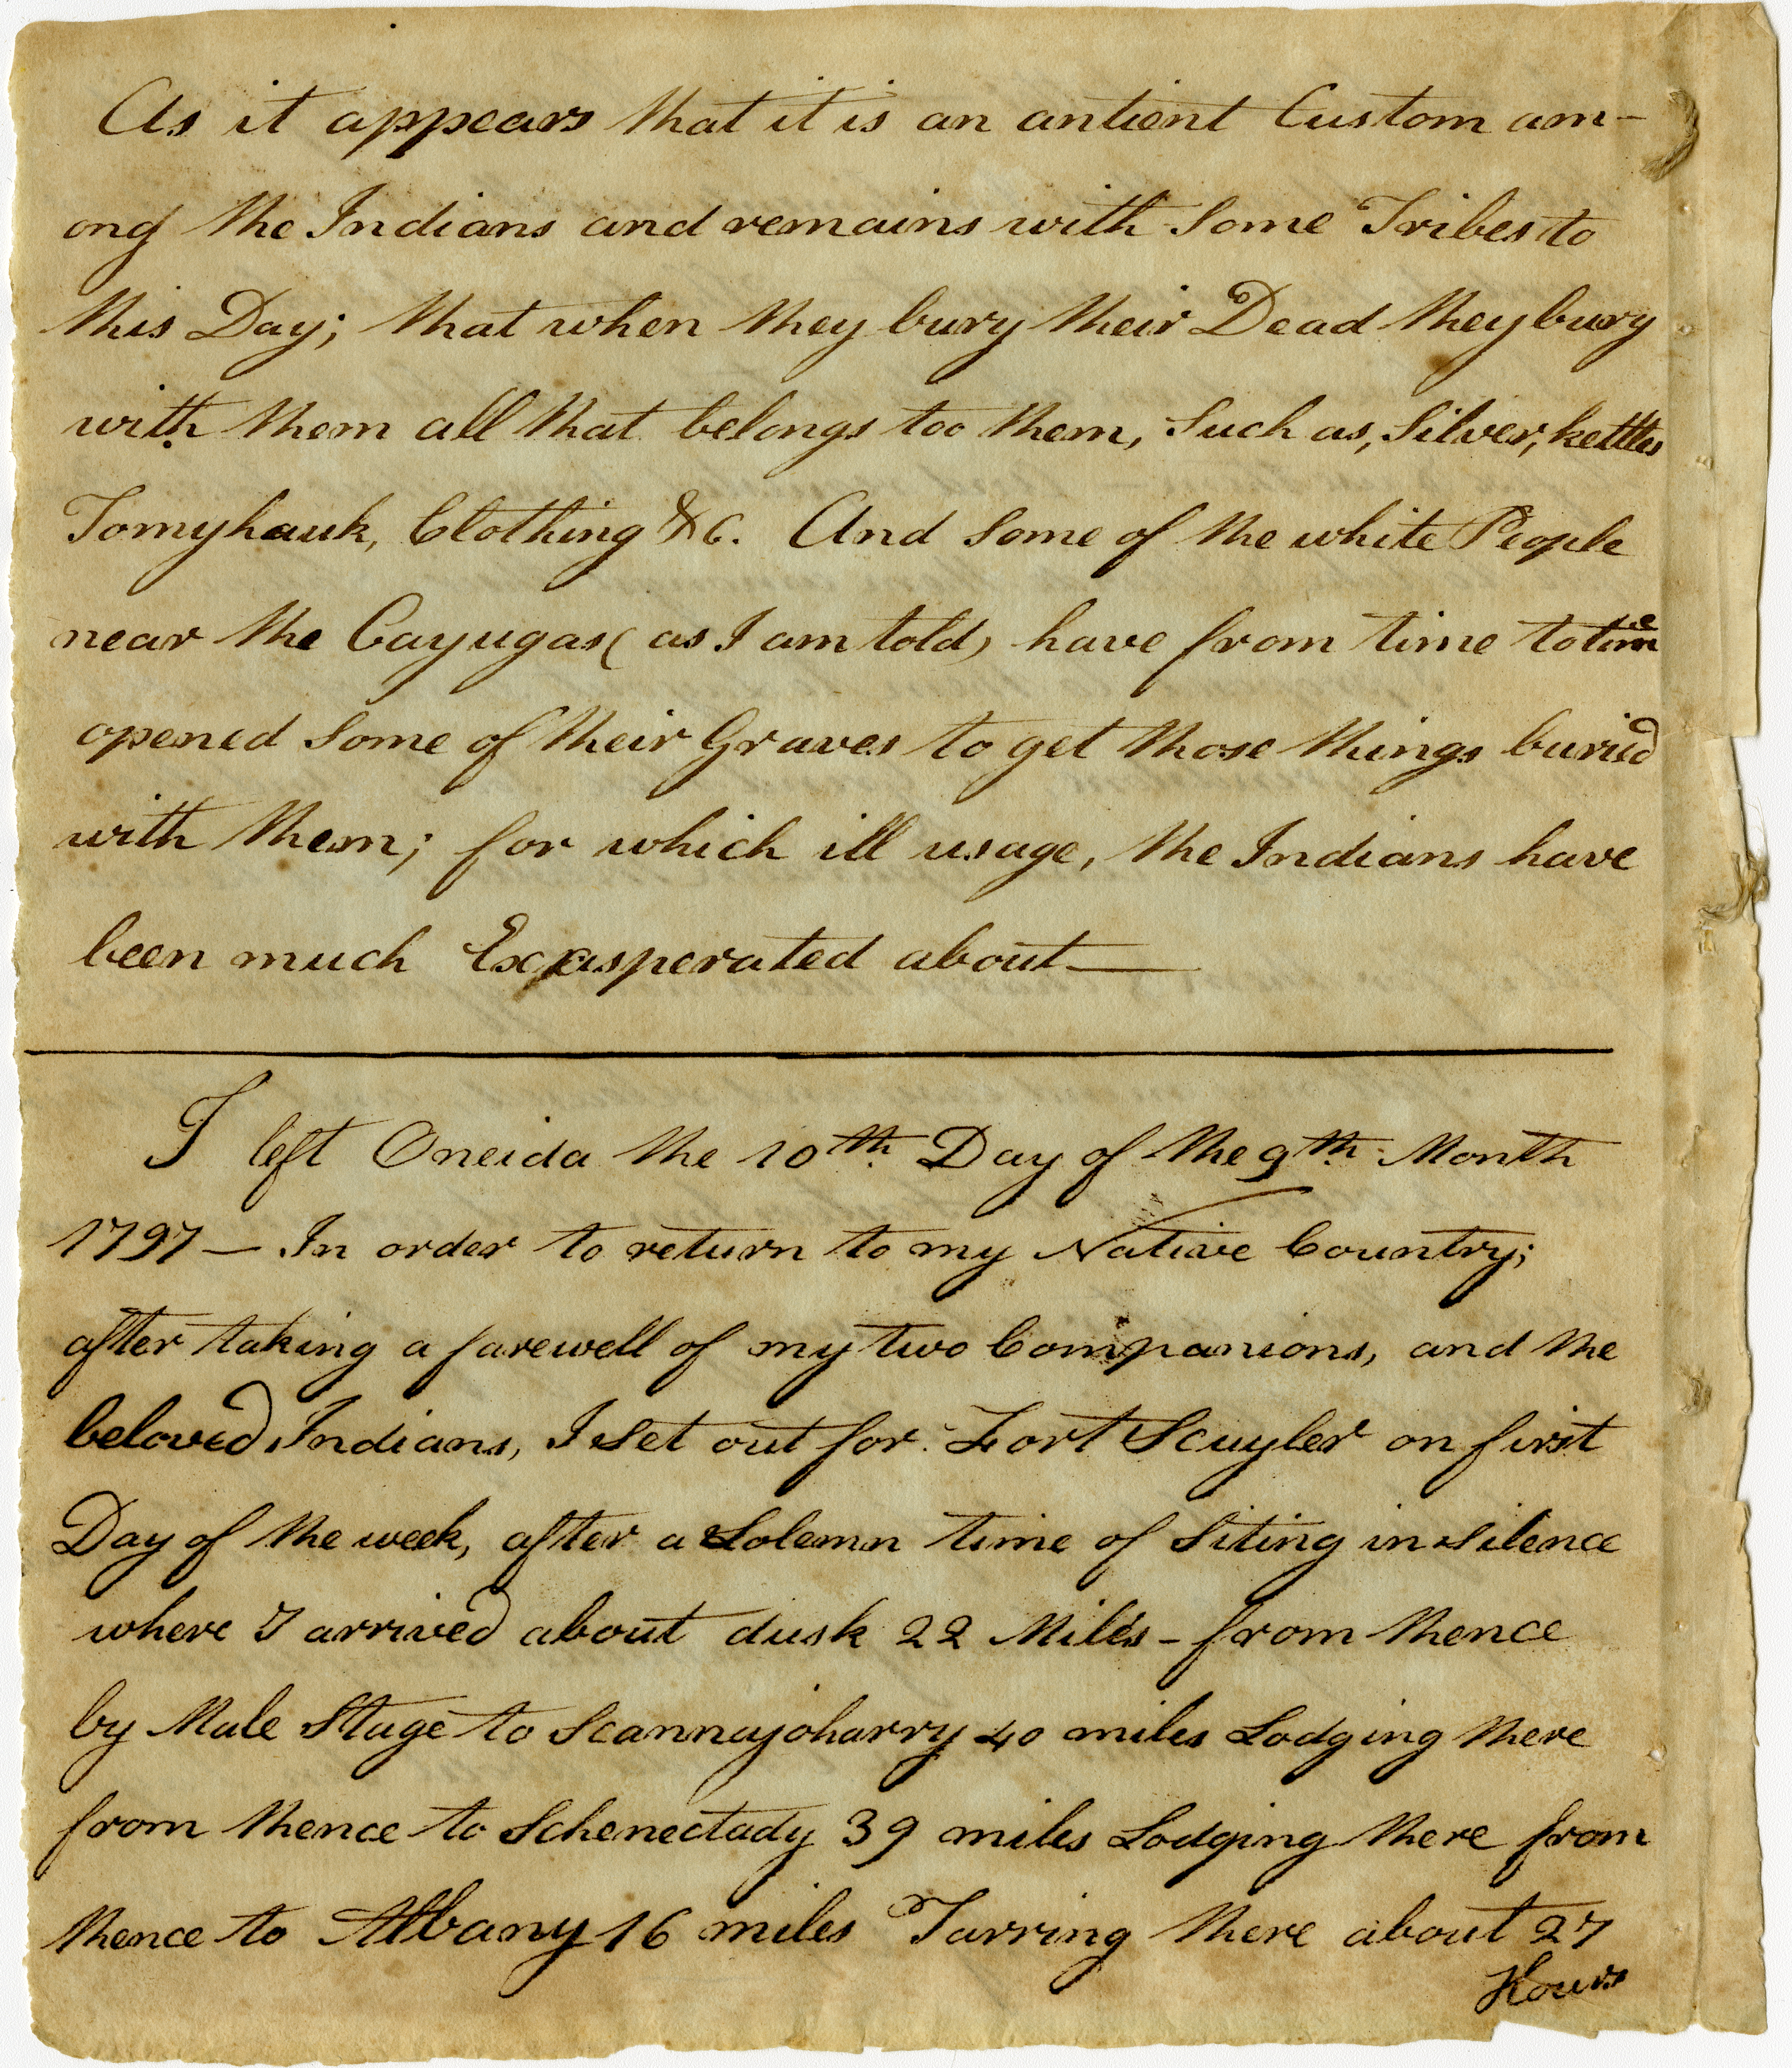 As it appears that it is an antient Custom am-
ong the Indians and remains with some Tribes to
this Day; that when they bury their Dead they bury
with them all that belongs too them, Such as, Silver, kettles
Tomyhauk, Clothing &c. And some of the white People
near the Cayugas (as I am told) have from time to time
opened some of their Graves to get those things buried
with them; for which ill usage, the Indians have
been much Exasperated about—
I left Oneida the 10th Day of the 9th Month
1797 — In order to return to my Native Country;
after taking a farewell of my two Companions, and the
beloved Indians, I set out for Fort Scuyler on first
Day of the week, after a Solemn time of Siting in silence
where I arrived about dusk 22 Miles - from thence
by Male Stage to Scannajoharry 40 miles Lodging there
from thence to Schenectady 39 miles Lodging there from
thence to Albany 16 miles Tarring there about 27
Hours